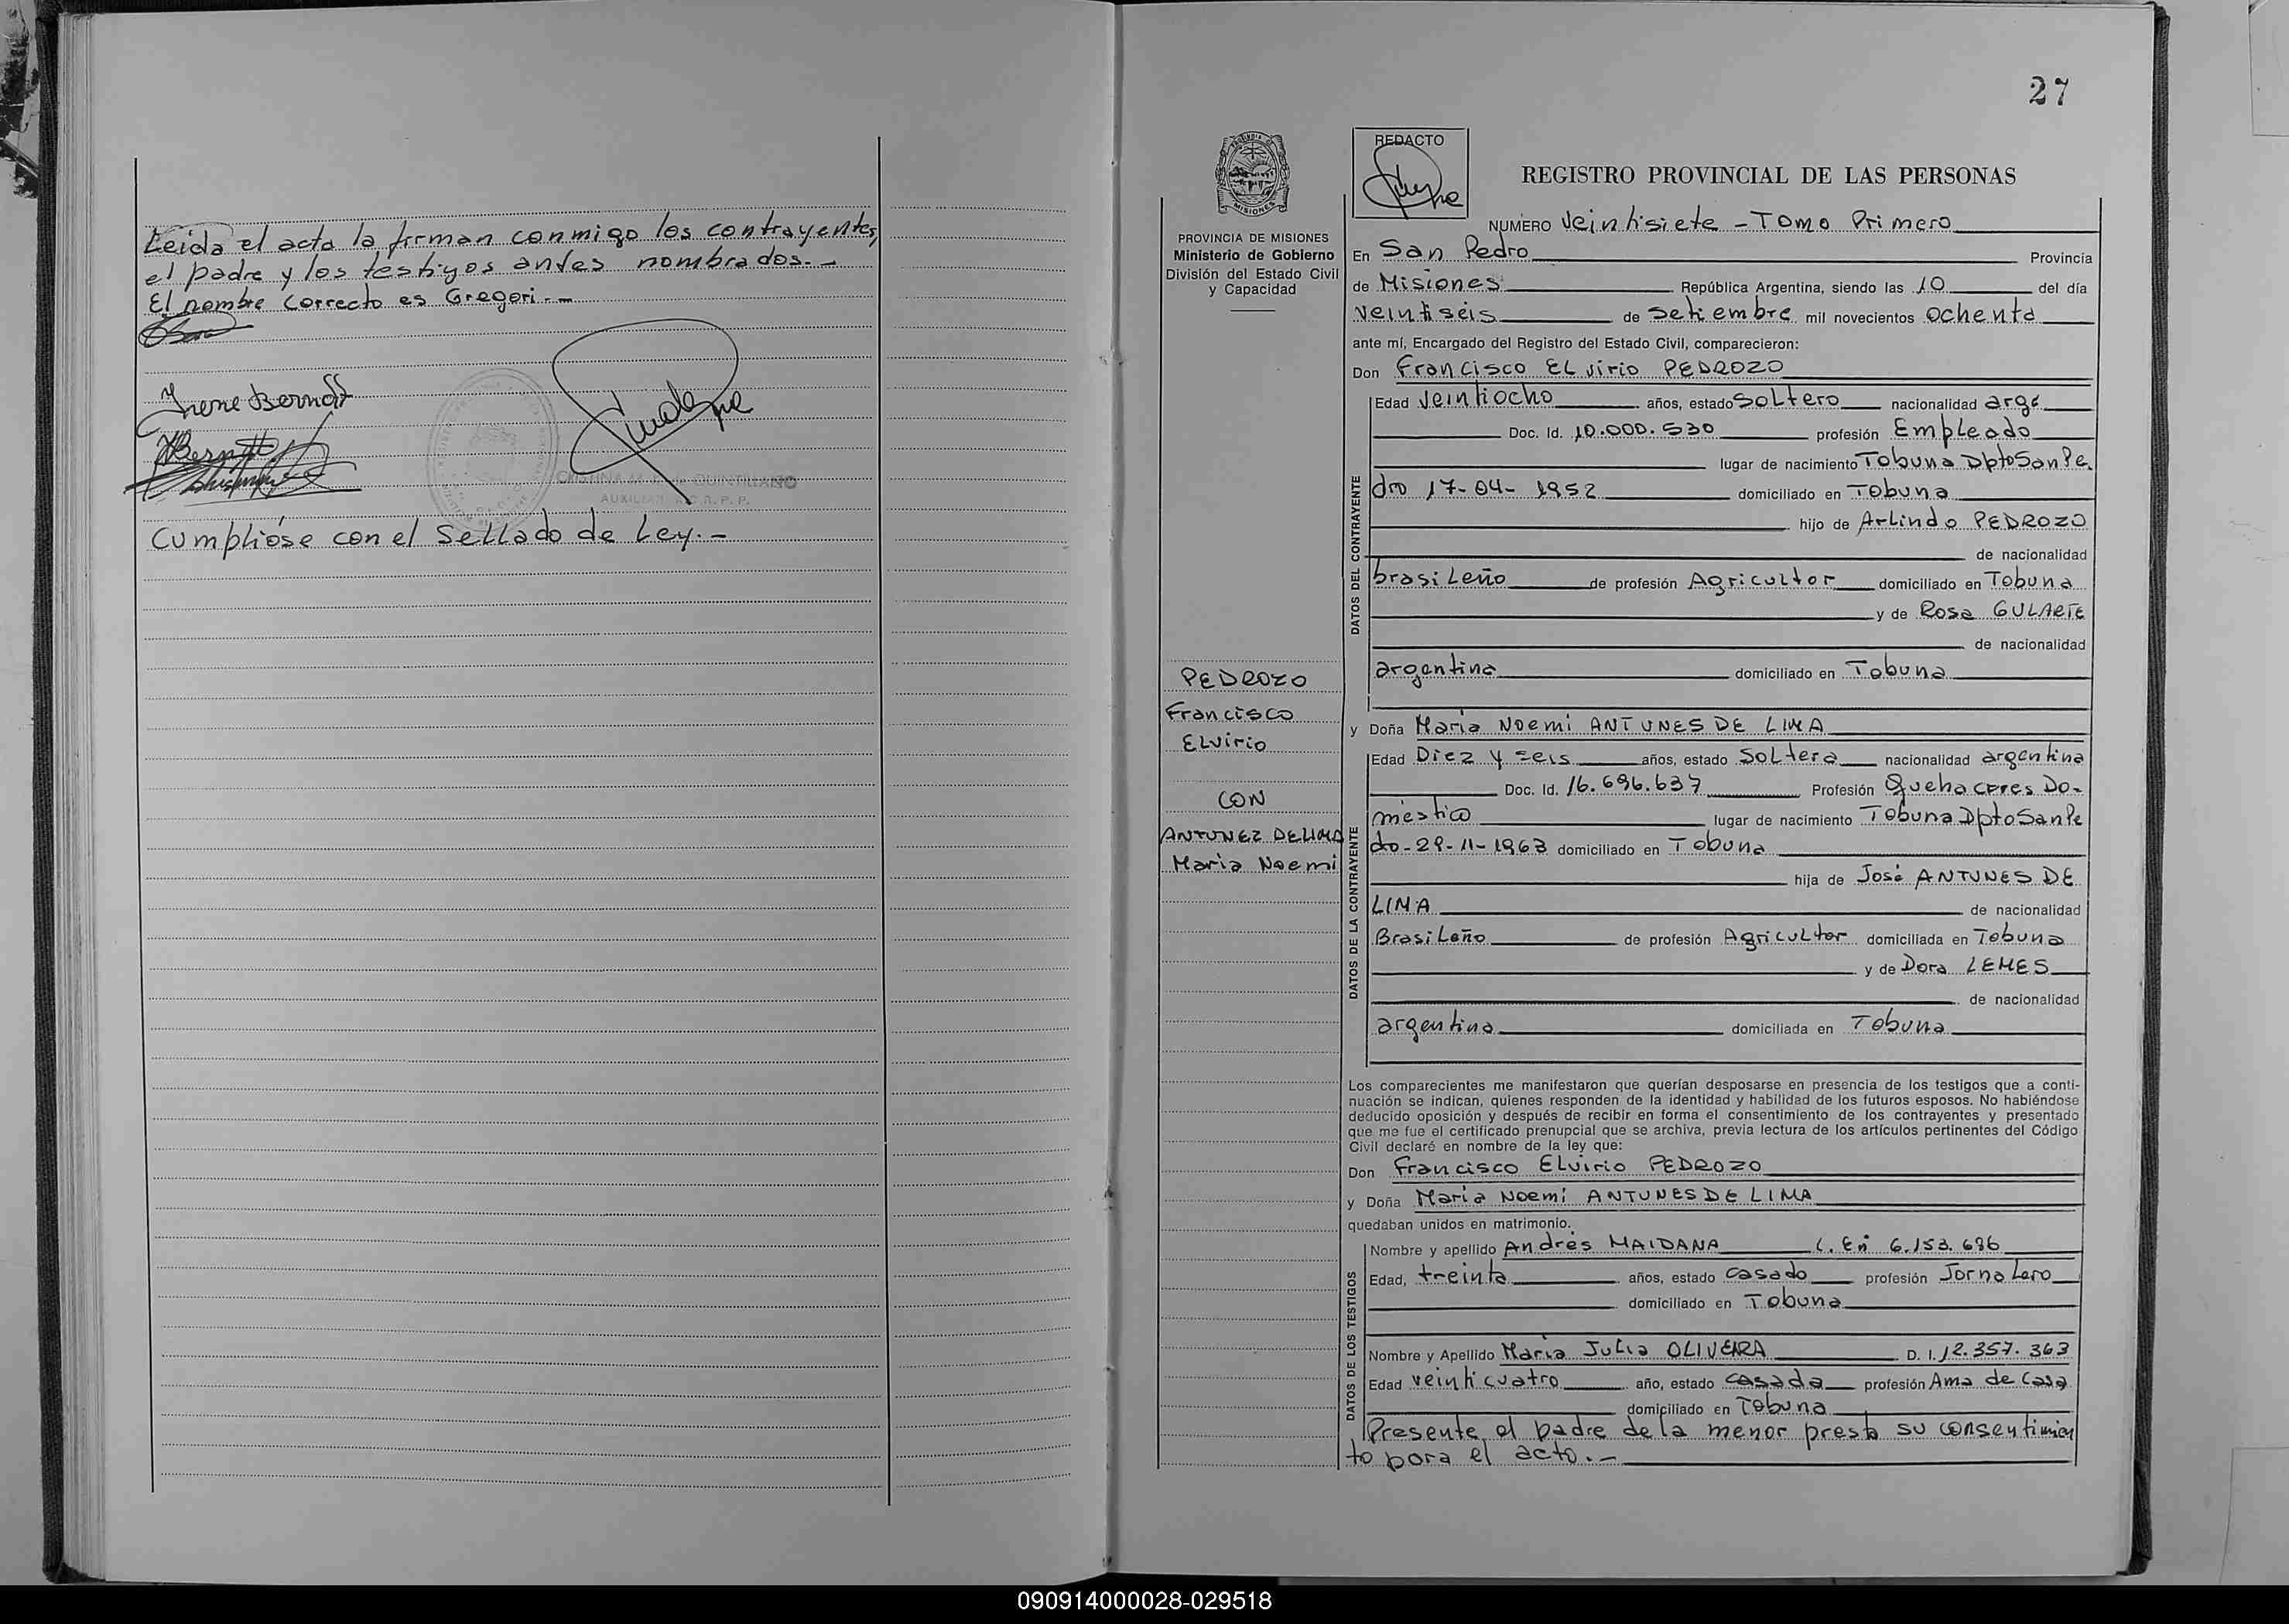 Leida el acta la firman conmigo los contrayentes,
el padre y los testigos antes nombrados.-
El nombre correcto es Gregori.-
Irene Bernatt
Bernatt
CRISTINA M. QUINTILIANO
AUXILIAR R. P. P.
Cumplióse con el Sellado de Ley.-
27
PROVINCIA DE MISIONES
Ministerio de Gobierno
División del Estado Civil
y Capacidad
PEDROZO
Francisco
Elvirio
CON
ANTUNEZ DE LIMA
Maria Noemi
REDACTO
REGISTRO PROVINCIAL DE LAS PERSONAS
NUMERO Veintisiete - Tomo Primero
En San Pedro Provincia
de Misiones República Argentina, siendo las 10 del día
veintiseis de Setiembre mil novecientos ochenta
ante mí, Encargado del Registro del Estado Civil, comparecieron:
Don Francisco Elvirio PEDROZO
DATOS DEL CONTRAYENTE
Edad Veintiocho años, estado Soltero nacionalidad arge
Doc. Id. 10.000.530 profesión Empleado
lugar de nacimiento Tobuna Dpto San Pe
dro 17-04-1952 domiciliado en Tobuna
hijo de Arlindo PEDROZO
de nacionalidad
brasileño de profesión Agricultor domiciliado en Tobuna
y de Rosa GULARTE
de nacionalidad
argentina domiciliado en Tobuna
y Doña Maria Noemi ANTUNES DE LIMA
DATOS DE LA CONTRAYENTE
Edad Diez y seis años, estado Soltera nacionalidad argentina
Doc. Id. 16.696.637 Profesión Quehaceres Do-
méstico lugar de nacimiento Tobuna Dpto San Pe
do-29-11-1963 domiciliado en Tobuna
hija de José ANTUNES DE
LIMA de nacionalidad
Brasileño de profesión Agricultor domiciliada en Tobuna
y de Dora LEMES
de nacionalidad
argentina domiciliada en Tobuna
Los comparecientes me manifestaron que querían desposarse en presencia de los testigos que a conti-
nuación se indican, quienes responden de la identidad y habilidad de los futuros esposos. No habiéndose
deducido oposición y después de recibir en forma el consentimiento de los contrayentes y presentado
que me fue el certificado prenupcial que se archiva, previa lectura de los artículos pertinentes del Código
Civil declaré en nombre de la ley que:
Don Francisco Elvirio PEDROZO
y Doña Maria Noemi ANTUNES DE LIMA
quedaban unidos en matrimonio.
DATOS DE LOS TESTIGOS
Nombre y apellido Andrés MAIDANA L. En 6.153.686
Edad, treinta años, estado casado profesión Jornalero
domiciliado en Tobuna
Nombre y Apellido Maria Julia OLIVEIRA D. I. 12.357.363
Edad veinticuatro año, estado casada profesión Ama de Casa
domiciliado en Tobuna
Presente el padre de la menor presta su consentimien
to para el acto.-
090914000028-029518